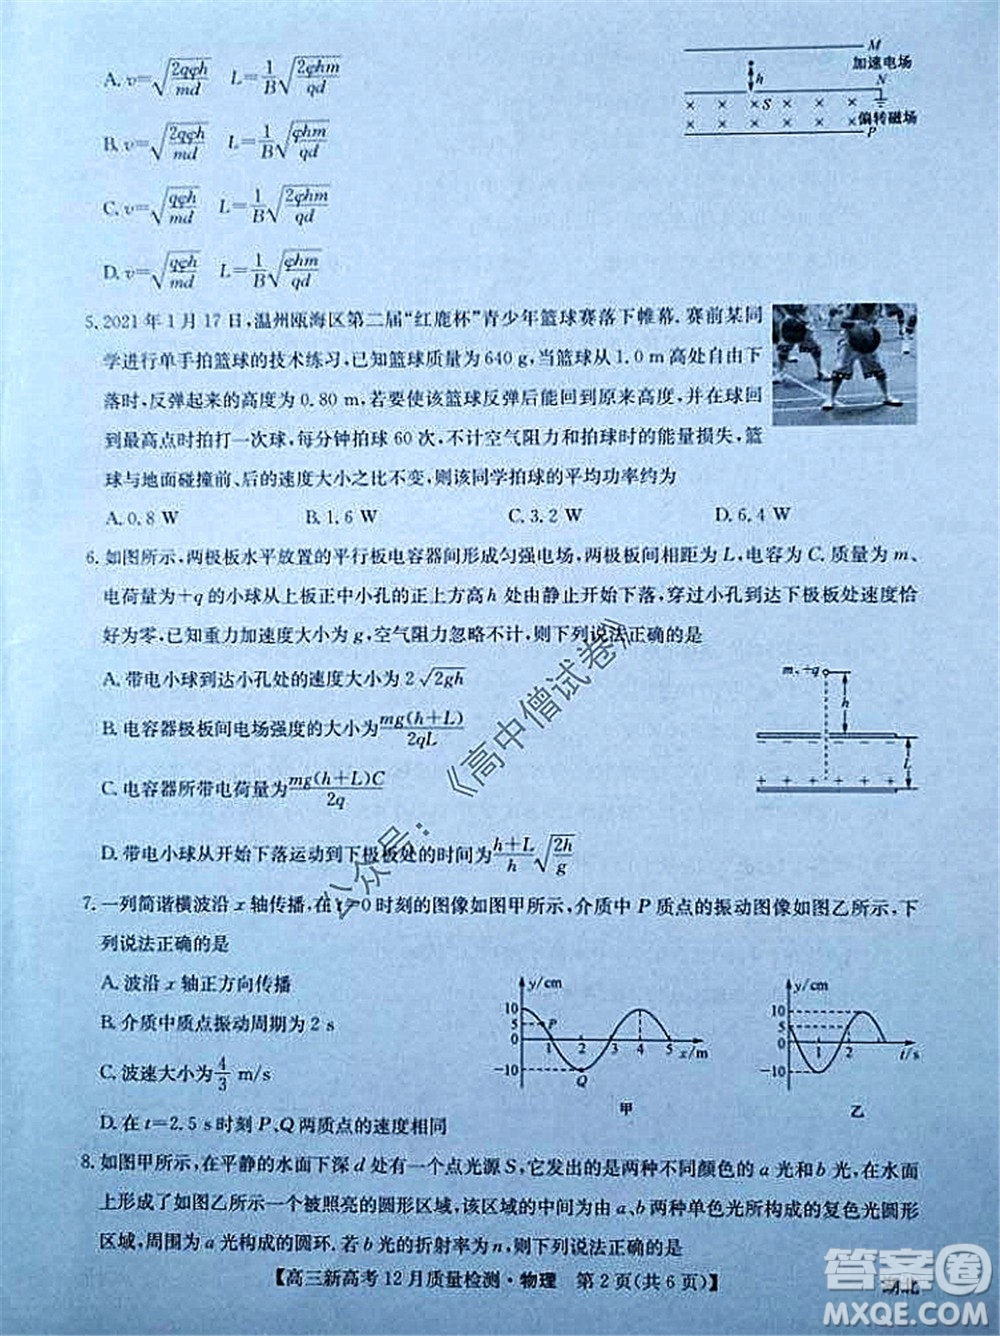 A. v=√(2qφh/md)  L=1/B √(2φhm/qd)
B. v=√(2qφh/md)  L=1/B √(φhm/qd)
C. v=√(qφh/md)  L=1/B √(2φhm/qd)
D. v=√(qφh/md)  L=1/B √(φhm/qd)
M
加速电场
h
N
S
偏转磁场
P
5. 2021年1月17日,温州瓯海区第二届“红鹿杯”青少年篮球赛落下帷幕.赛前某同
学进行单手拍篮球的技术练习,已知篮球质量为640 g,当篮球从1.0 m高处自由下
落时,反弹起来的高度为0.80 m,若要使该篮球反弹后能回到原来高度,并且在球
回到最高点时拍打一次球,每分钟拍球60次,不计空气阻力和拍球时的能量损失,篮
球与地面碰撞前、后的速度大小之比不变,则该同学拍球的平均功率约为
A. 0.8 W  B. 1.6 W  C. 3.2 W  D. 6.4 W
6. 如图所示,两极板水平放置的平行板电容器间形成匀强电场,两极板间相距为L,电容为C.质量为m、
电荷量为+q的小球从上板正中小孔的正上方高h处由静止开始下落,穿过小孔到达下极板处速度恰
好为零,已知重力加速度大小为g,空气阻力忽略不计,则下列说法正确的是
A. 带电小球到达小孔处的速度大小为2√2gh
B. 电容器极板间电场强度的大小为mg(h+L)/2qL
C. 电容器所带电荷量为mg(h+L)C/2q
D. 带电小球从开始下落运动到下极板处的时间为(h+L)/h √(2h/g)
m, +q
h
L
公众号:《高中僧试卷》
7. 一列简谐横波沿x轴传播,在t=0时刻的图像如图甲所示,介质中P质点的振动图像如图乙所示,下
列说法正确的是
A. 波沿x轴正方向传播
B. 介质中质点振动周期为2 s
C. 波速大小为4/3 m/s
D. 在t=2.5 s时刻P、Q两质点的速度相同
y/cm
10
5
-10
P
Q
1 2 3 4 5 x/m
甲
y/cm
10
5
-10
1 2 t/s
乙
8. 如图甲所示,在平静的水面下深d处有一个点光源S,它发出的是两种不同颜色的a光和b光,在水面
上形成了如图乙所示一个被照亮的圆形区域,该区域的中间为由a、b两种单色光所构成的复色光圆形
区域,周围为a光构成的圆环.若b光的折射率为n,则下列说法正确的是
【高三新高考12月质量检测·物理 第2页(共6页)】
湖北
答案圈
MXQE.COM